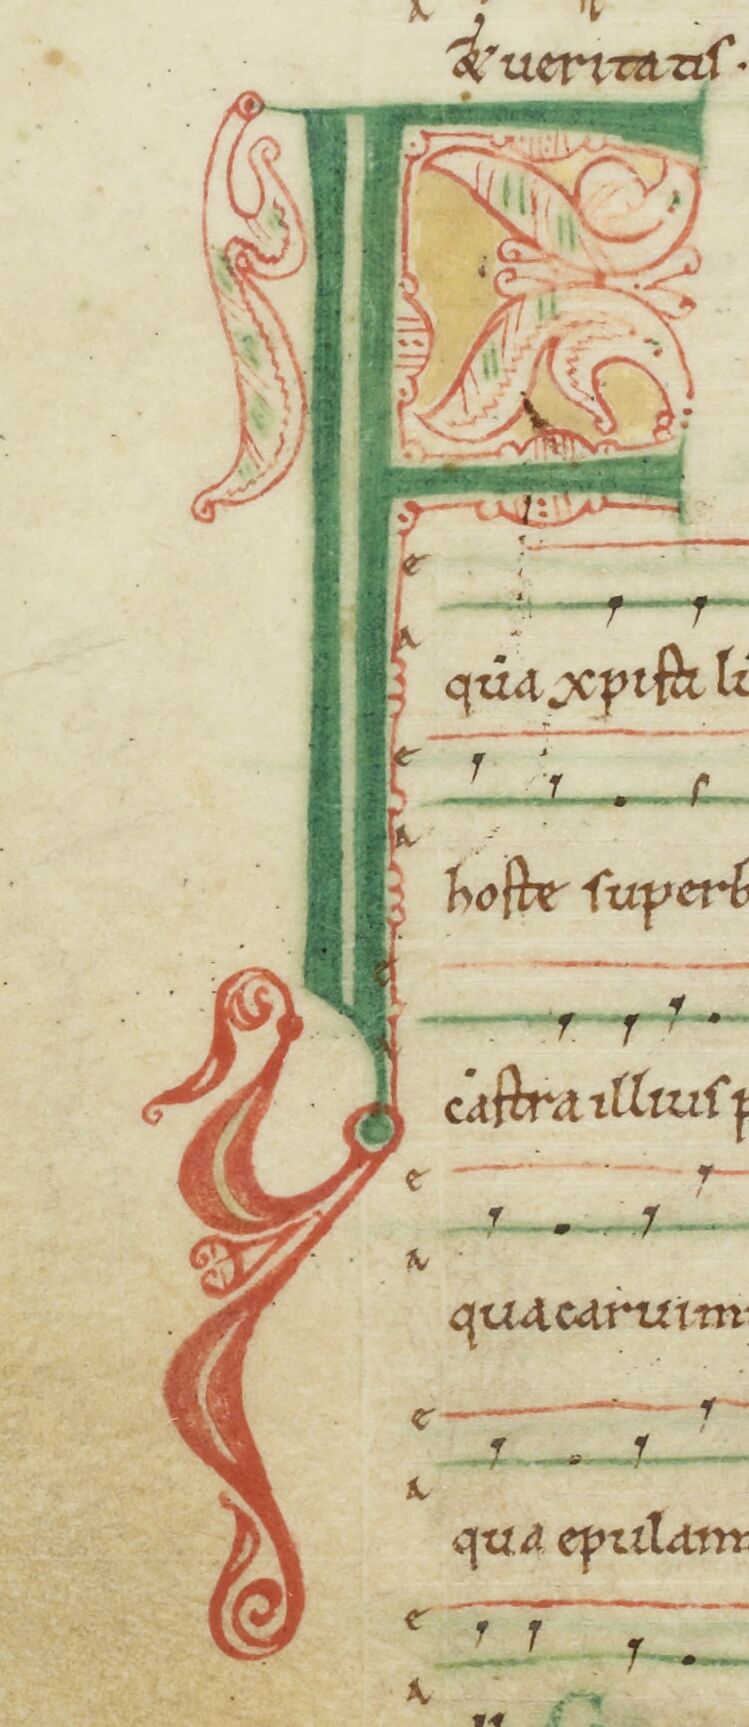 & ueritatis.
F
e
a
qua xpisti li
e
a
hoste superb
castra illius p
e
a
qua caruim
e
a
qua epulam
e
a